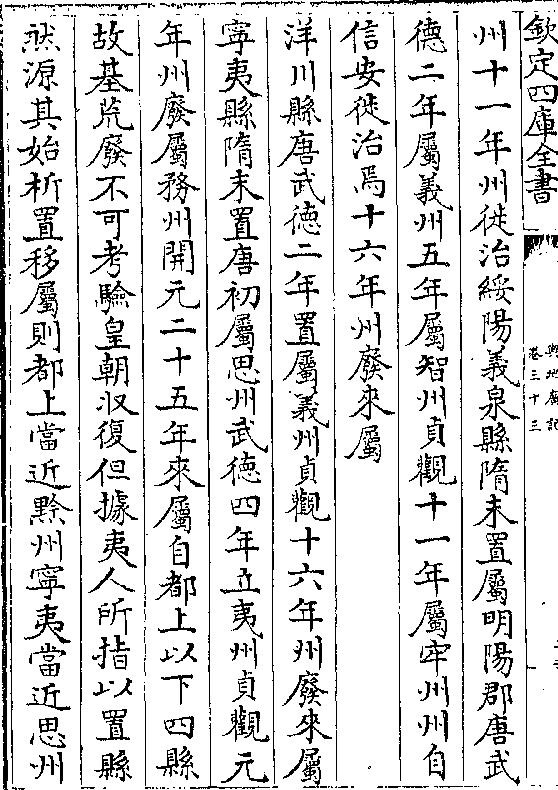 欽定四庫全書
輿地廣記
卷三十三
州十一年州徙治綏陽義泉縣隋末置屬明陽郡唐武
德二年屬義州五年屬智州貞觀十一年屬牢州州自
信安徙治焉十六年州廢來屬
洋川縣唐武德二年置屬義州貞觀十六年州廢來屬
寧夷縣隋末置唐初屬思州武德四年立夷州貞觀元
年州廢屬務州開元二十五年來屬自都上以下四縣
故基荒廢不可考驗皇朝収復但據夷人所指以置縣
然源其始析置移屬則都上當近黔州寧夷當近思州